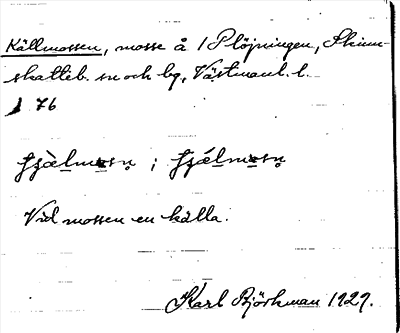 Källmossen, mosse å 1 Plöjningen, Skinn-
skatteb. sn och bg, Västmanl. l.
76
Vid mossen en källa.
Karl Björkman 1929.